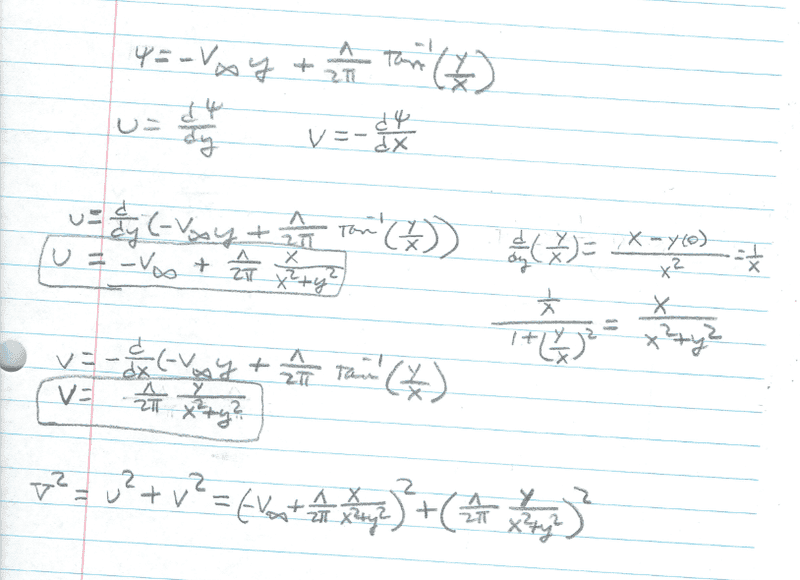 Ψ = -V∞ y + Λ/2π Tan⁻¹(y/x)
u = dΨ/dy    v = -dΨ/dx
u = d/dy (-V∞ y + Λ/2π Tan⁻¹(y/x))
u = -V∞ + Λ/2π x/(x²+y²)
d/dy (y/x) = (x - y(0))/x² = 1/x
(1/x)/(1+(y/x)²) = x/(x²+y²)
v = -d/dx (-V∞ y + Λ/2π Tan⁻¹(y/x)
v = Λ/2π y/(x²+y²)
V² = u² + v² = (-V∞ + Λ/2π x/(x²+y²))² + (Λ/2π y/(x²+y²))²